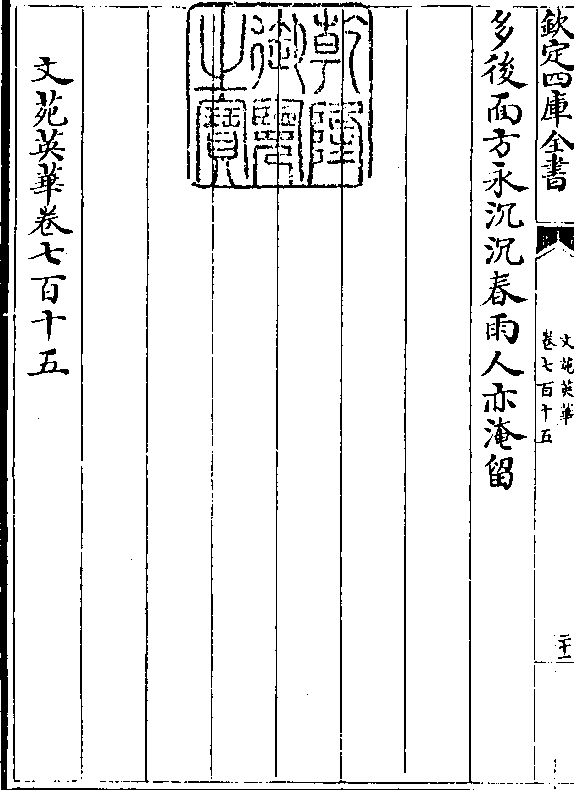 欽定四庫全書
文苑英華
卷七百十五
二十一
多後面方永沉沉春雨人亦淹留
乾隆
御覽
之寶
文苑英華卷七百十五